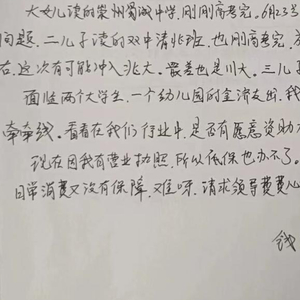 大女儿读的崇州蜀城中学,刚刚高考完。6月23当
问题,二儿子读的双中清北班,也刚高考完,
右,这次有可能冲入北大。最差也是川大。三儿子
面临两个大学生,一个幼儿园的金流支出,我
牵牵线。看看在我们行业中,是否有愿意资助
现在因我有营业执照,所以低保也办不了。
日常消费又没有保障,难呀,请求领导费费心
钱